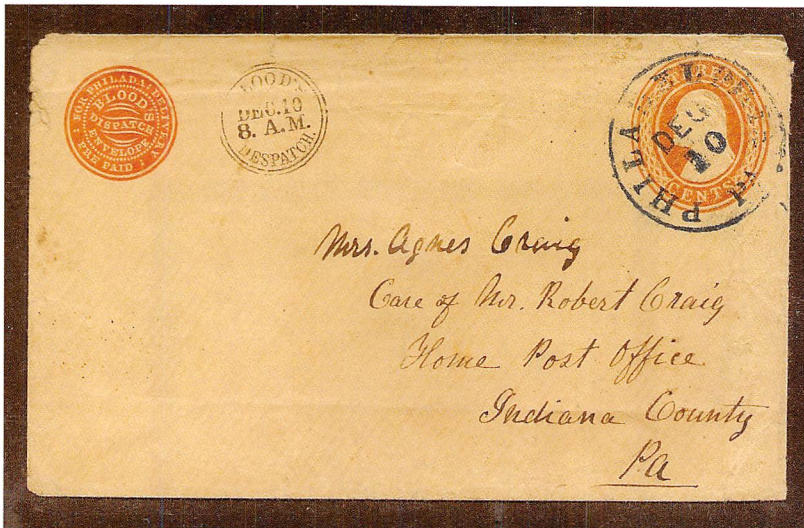 FOR PHILADA: DELIVERY
BLOOD'S
DISPATCH
ENVELOPE
PRE PAID
BLOOD'S
DEC. 10
8. A.M.
DESPATCH.
PHILADELPHIA Pa
DEC
10
CENTS
Mrs. Agnes Craig
Care of Mr. Robert Craig
Home Post Office
Indiana County
Pa